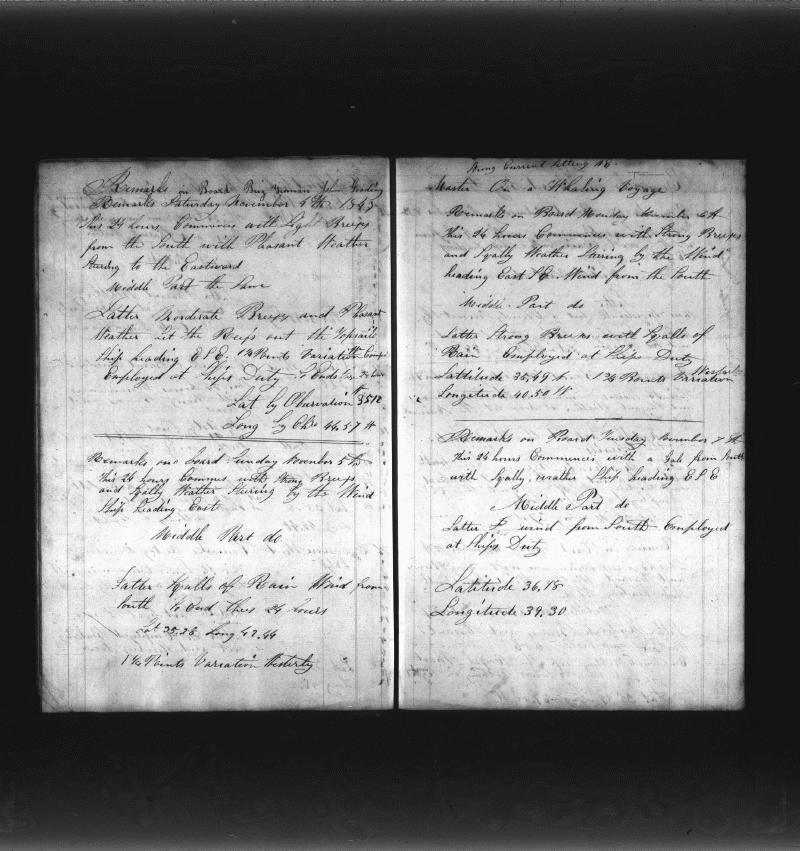 Remarks on Board Brig John
Remarks Saturday November 4th 1843
This 24 hours Commences with Light Breezes
from the South with Pleasant Weather
Steering to the Eastward
Middle Part the Same
Latter Moderate Breezes and Pleasant
Weather Let the Reefs out the Topsails
Ship heading E S E. 1¾ Points Variation
Employed at Ships Duty So Ends
Lat by Observation 35 12
Long by Chr 44.57 W
Remarks on Board Sunday November 5th
This 24 hours Commes with Strong Breezes
and Squally Weather Steering by the Wind
Ship Heading East
Middle Part do
Latter Squalls of Rain Wind from
South So End Thes 24 hours
Lat 35.28 Long 42.44
Points Variation Westerly
Strong Current setting
Master On a Whaling Voyage
Remarks on Board Monday November 6th
This 24 hours Commences with Strong Breezes
and Squally Weather Steering by the Wind
heading East S E. Wind from the South
Middle Part do
Latter Strong Breezes with Squalls of
Rain Employed at Ships Duty
Lattitude 35,49 N 1¾ Points Variation
Longitude 40.50 W
Remarks on Board Tuesday November 7th
This 24 hours Commences with a Gale from South
with Squally weather Ship heading E S E
Middle Part do
Latter wind from South Employed
at Ships Duty
Latitude 36.18
Longitude 39.30